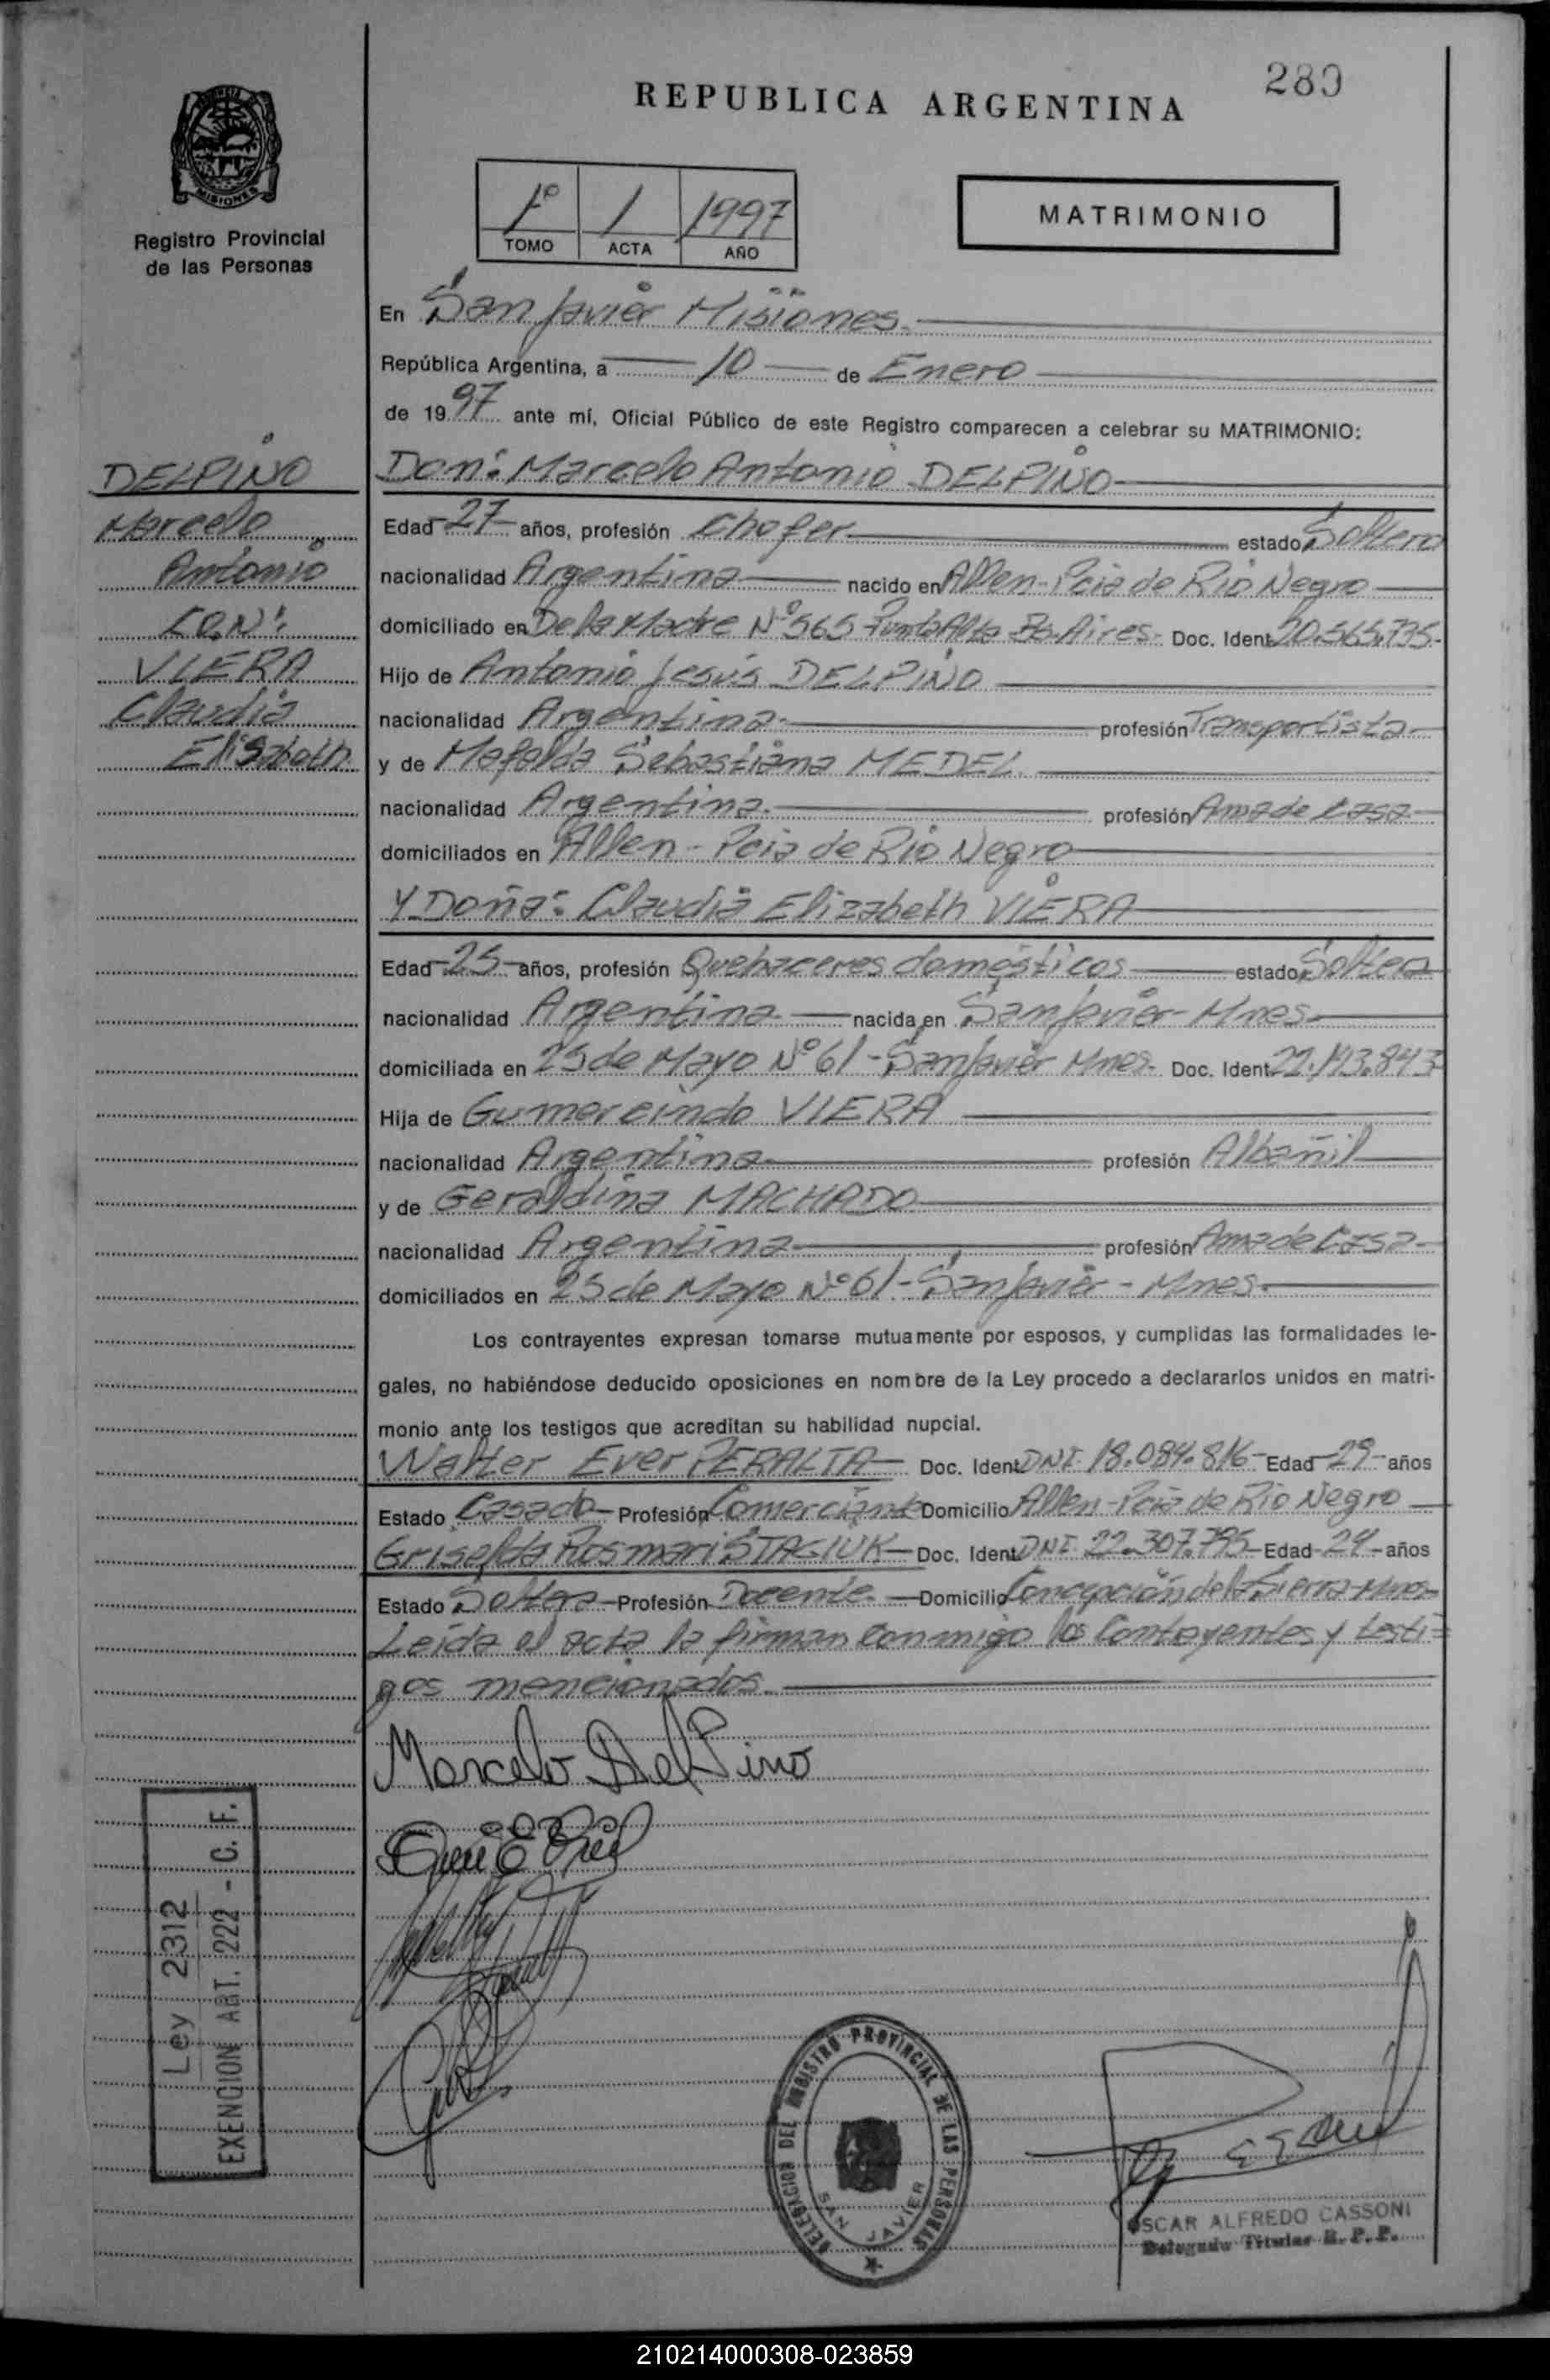 280
REPUBLICA ARGENTINA
MISIONES
Registro Provincial
de las Personas
1º 1 1997
TOMO ACTA AÑO
MATRIMONIO
En San Javier Misiones.
República Argentina, a 10 de Enero
de 1997 ante mí, Oficial Público de este Registro comparecen a celebrar su MATRIMONIO:
DELPINO
Marcelo
Antonio
CON:
VIERA
Claudia
Elisabeth
Don: Marcelo Antonio DELPINO
Edad 27 años, profesión Chofer. estado Soltero
nacionalidad Argentina nacido en Allen-Pcia de Rio Negro
domiciliado en De la Madre Nº 565 Punta Alta Bs. Aires. Doc. Ident. 20.565.735.
Hijo de Antonio Jesús DELPINO
nacionalidad Argentina. profesión Transportista
y de Mafalda Sebastiana MEDEL.
nacionalidad Argentina. profesión Ama de Casa
domiciliados en Allen - Pcia de Rio Negro
Y Doña: Claudia Elizabeth VIERA
Edad 25 años, profesión Quehaceres domésticos estado Soltera
nacionalidad Argentina nacida en San Javier - Mnes.
domiciliada en 25 de Mayo Nº 61 - San Javier Mnes. Doc. Ident.
Hija de Gumercindo VIERA
nacionalidad Argentina profesión Albañil
y de Geraldina MACHADO
nacionalidad Argentina profesión Ama de Casa
domiciliados en 25 de Mayo Nº 61 - San Javier - Mnes.
Los contrayentes expresan tomarse mutuamente por esposos, y cumplidas las formalidades le-
gales, no habiéndose deducido oposiciones en nombre de la Ley procedo a declararlos unidos en matri-
monio ante los testigos que acreditan su habilidad nupcial.
Walter Ever PERALTA Doc. Ident. DNI 18.084.816 Edad 29 años
Estado Casado Profesión Comerciante Domicilio Allen-Pcia de Rio Negro
Griselda Rosmari STAGIUK Doc. Ident. DNI 22.307.795 Edad 24 años
Estado Soltera Profesión Docente. Domicilio Concepción de la Sierra-Mnes
Leída el acta la firman conmigo los Contrayentes y testi=
gos mencionados.
Marcelo DelPino
Ley 2312
EXENCION ART. 222 - C. F.
DELEGACION DEL REGISTRO PROVINCIAL DE LAS PERSONAS
SAN JAVIER
OSCAR ALFREDO CASSONI
Delegado Titular R. P. P.
210214000308-023859